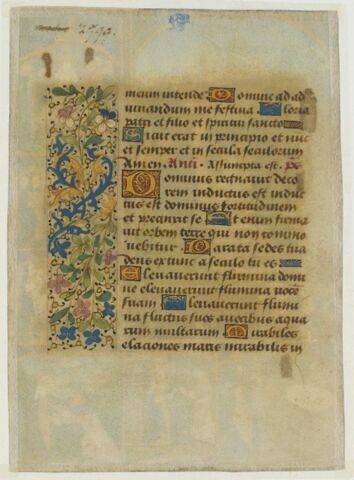 2790.
meum intende Domine ad ad
iuuandum me festina Gloria
patri et filio et spiritui sancto
Sicut erat in principio et nūc
et semper et in secula seculorum
Amen. Anti. Assumpta est. ps
Dominus regnauit deco
rem indutus est indu
tus est dominus fortitudinem
et precinxit se Etenim firma
uit orbem terre qui non commo
uebitur Parata sedes tua
deus ex tunc a seculo tu es
Eleuauerunt flumina domi
ne eleuauerunt flumina vocē
suam Eleuauerunt flumi
na fluctus suos a vocibus aqua
rum multarum Mirabiles
elaciones maris mirabilis in